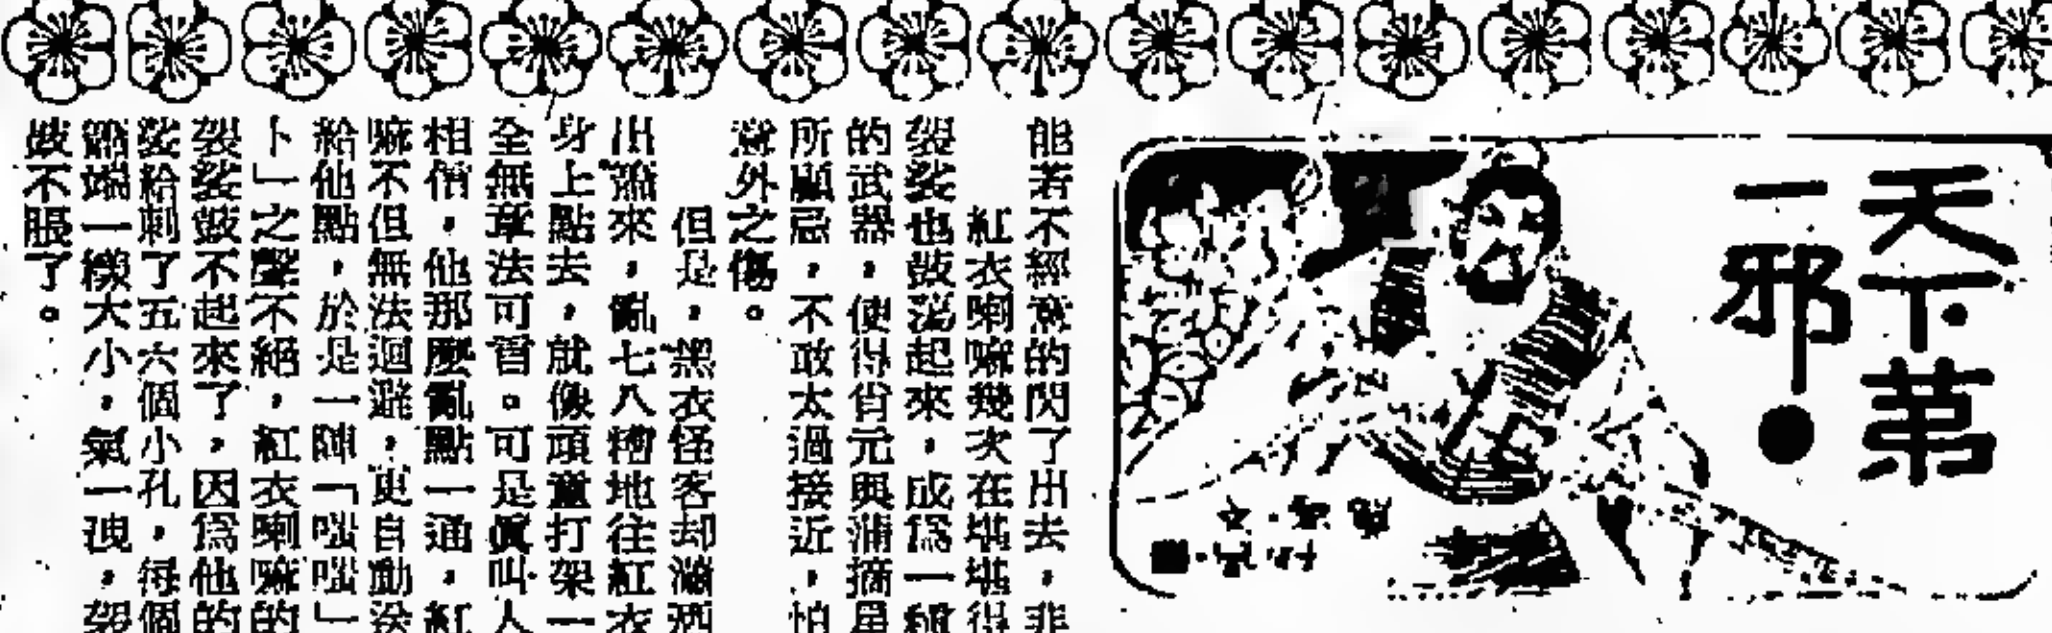 天下第
一邪
能若不經意的閃了出去，非
紅衣喇嘛幾次在堪堪得
袈裟也鼓蕩起來，成爲一種
的武器，使得肖元與蒲摘星
所顧忌，不敢太過接近，怕
意外之傷。
但是，黑衣怪客却瀟洒
出簫來，亂七八糟地往紅衣
身上點去，就像頑童打架一
全無章法可言。可是眞叫人
相信，他那麼亂點一通，紅
嘛不但無法迴避，更自動送
給他點，於是一陣「嗤嗤」
卜」之聲不絕，紅衣喇嘛的
袈裟鼓不起來了，因爲他的
裟給刺了五六個小孔，每個
簫端一樣大小，氣一洩，袈
鼓不脹了。